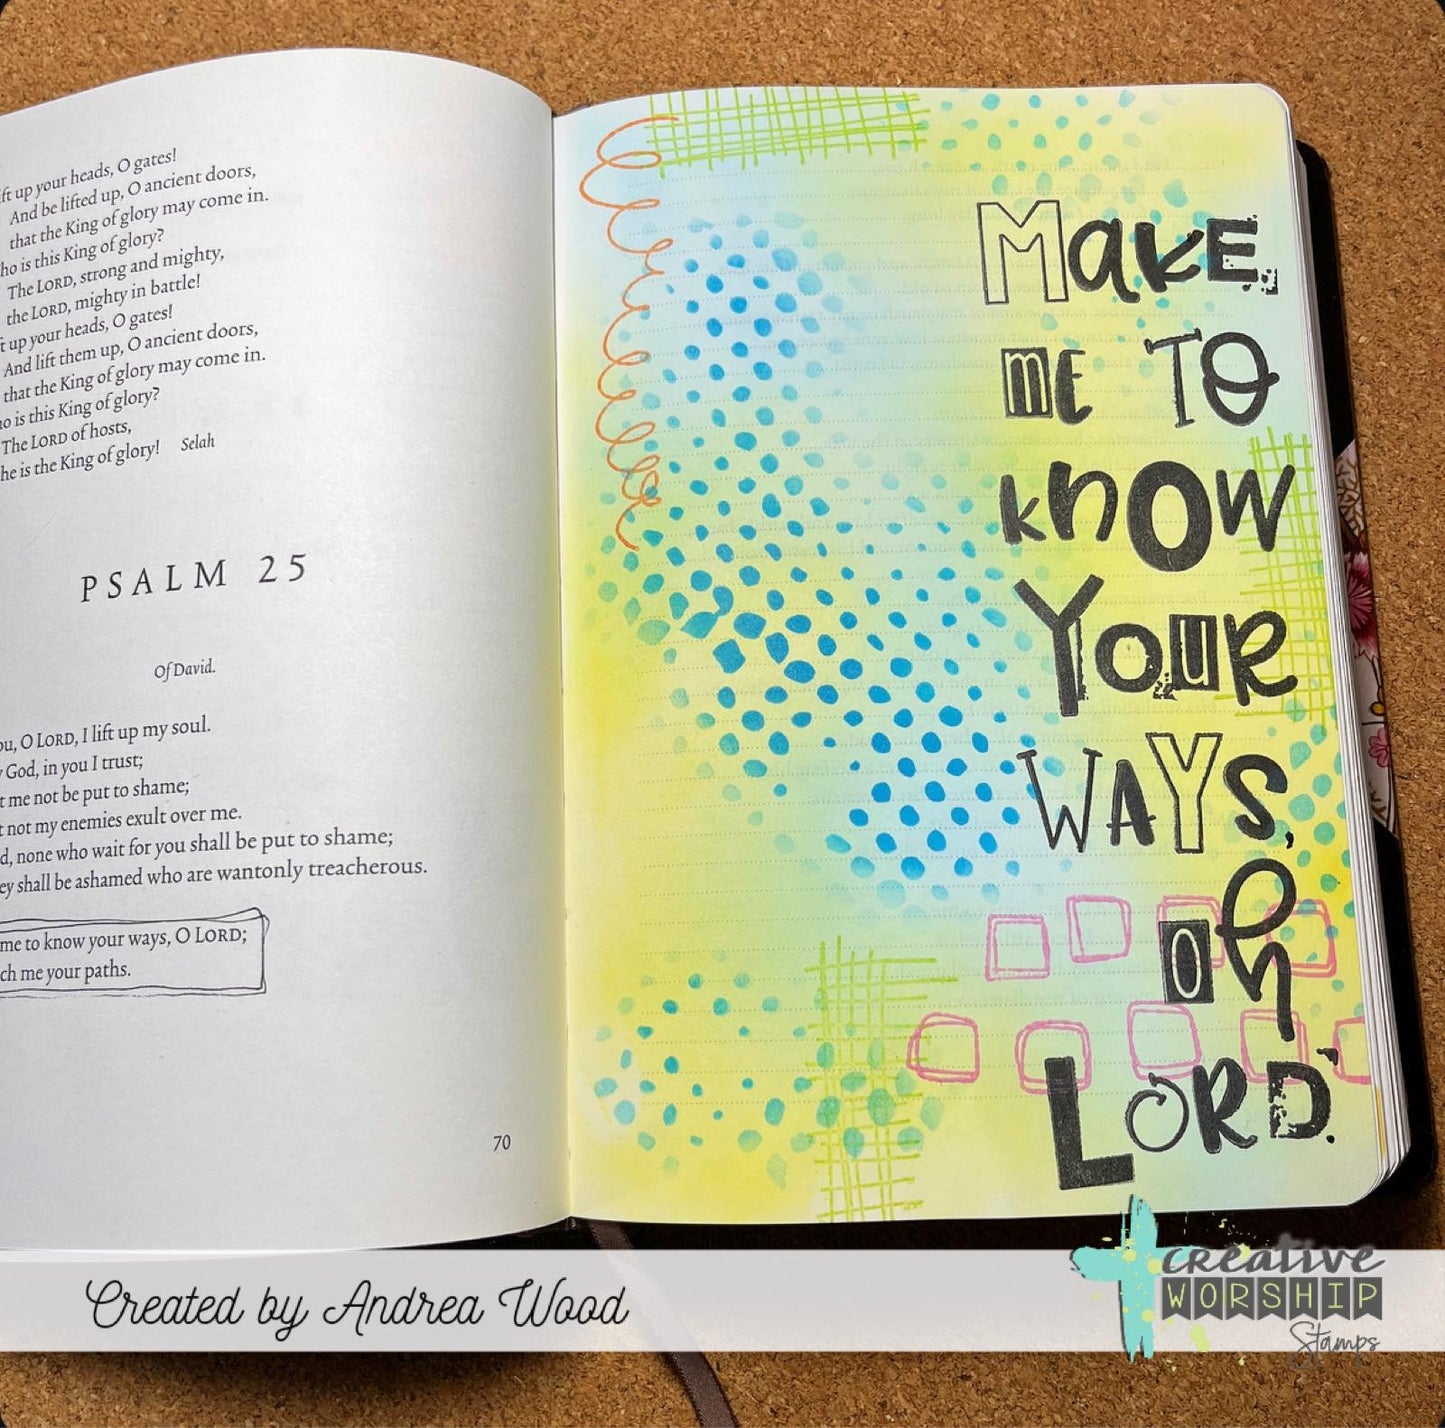 ft up your heads, O gates!
And be lifted up, O ancient doors,
that the King of glory may come in.
ho is this King of glory?
The LORD, strong and mighty,
the LORD, mighty in battle!
t up your heads, O gates!
And lift them up, O ancient doors,
that the King of glory may come in.
ho is this King of glory?
The LORD of hosts,
he is the King of glory! Selah
PSALM 25
Of David.
ou, O LORD, I lift up my soul.
God, in you I trust;
t me not be put to shame;
t not my enemies exult over me.
d, none who wait for you shall be put to shame;
ey shall be ashamed who are wantonly treacherous.
me to know your ways, O LORD;
ch me your paths.
70
Make
me TO
know
Your
WAYS,
oh
LORD.
Created by Andrea Wood
creative
WORSHIP
Stamps